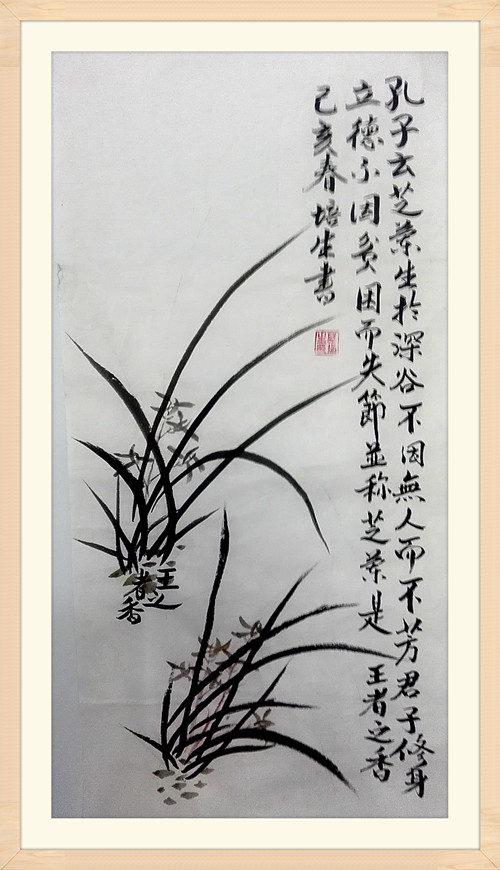 孔子云芝蘭生於深谷不因無人而不芳君子修身
立德不因貧困而失節並称芝蘭是王者之香
己亥春培生書
王之
者香